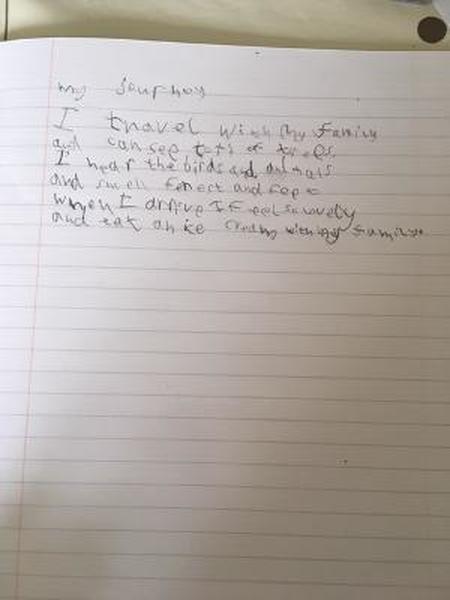 my journey
I travel with my family
and can see lots of trees.
I hear the birds and animals
and smell forest and
when I arrive I feel so lovely
and eat an ice cream with my family